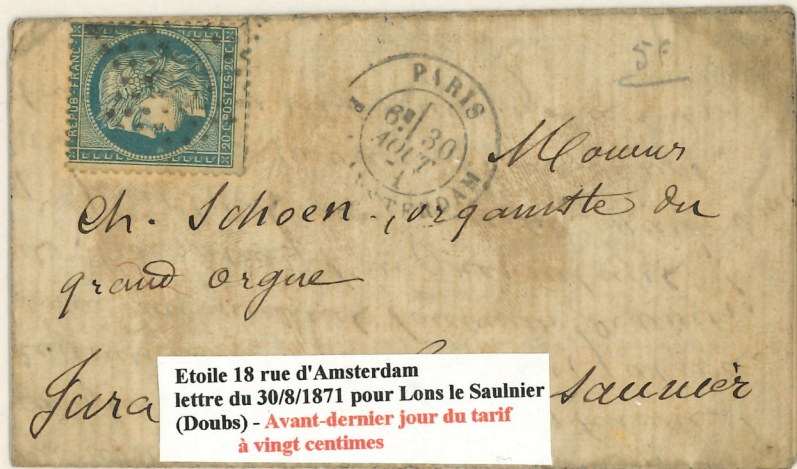 REPUB. FRANC.
20 C. POSTES. 20 C.
5F
PARIS
6E 30
AOUT
71
R. AMSTERDAM
Monsieur
Ch. Schoen, organiste du
grand orgue
Jura
saunier
Etoile 18 rue d'Amsterdam
lettre du 30/8/1871 pour Lons le Saulnier
(Doubs) - Avant-dernier jour du tarif
à vingt centimes